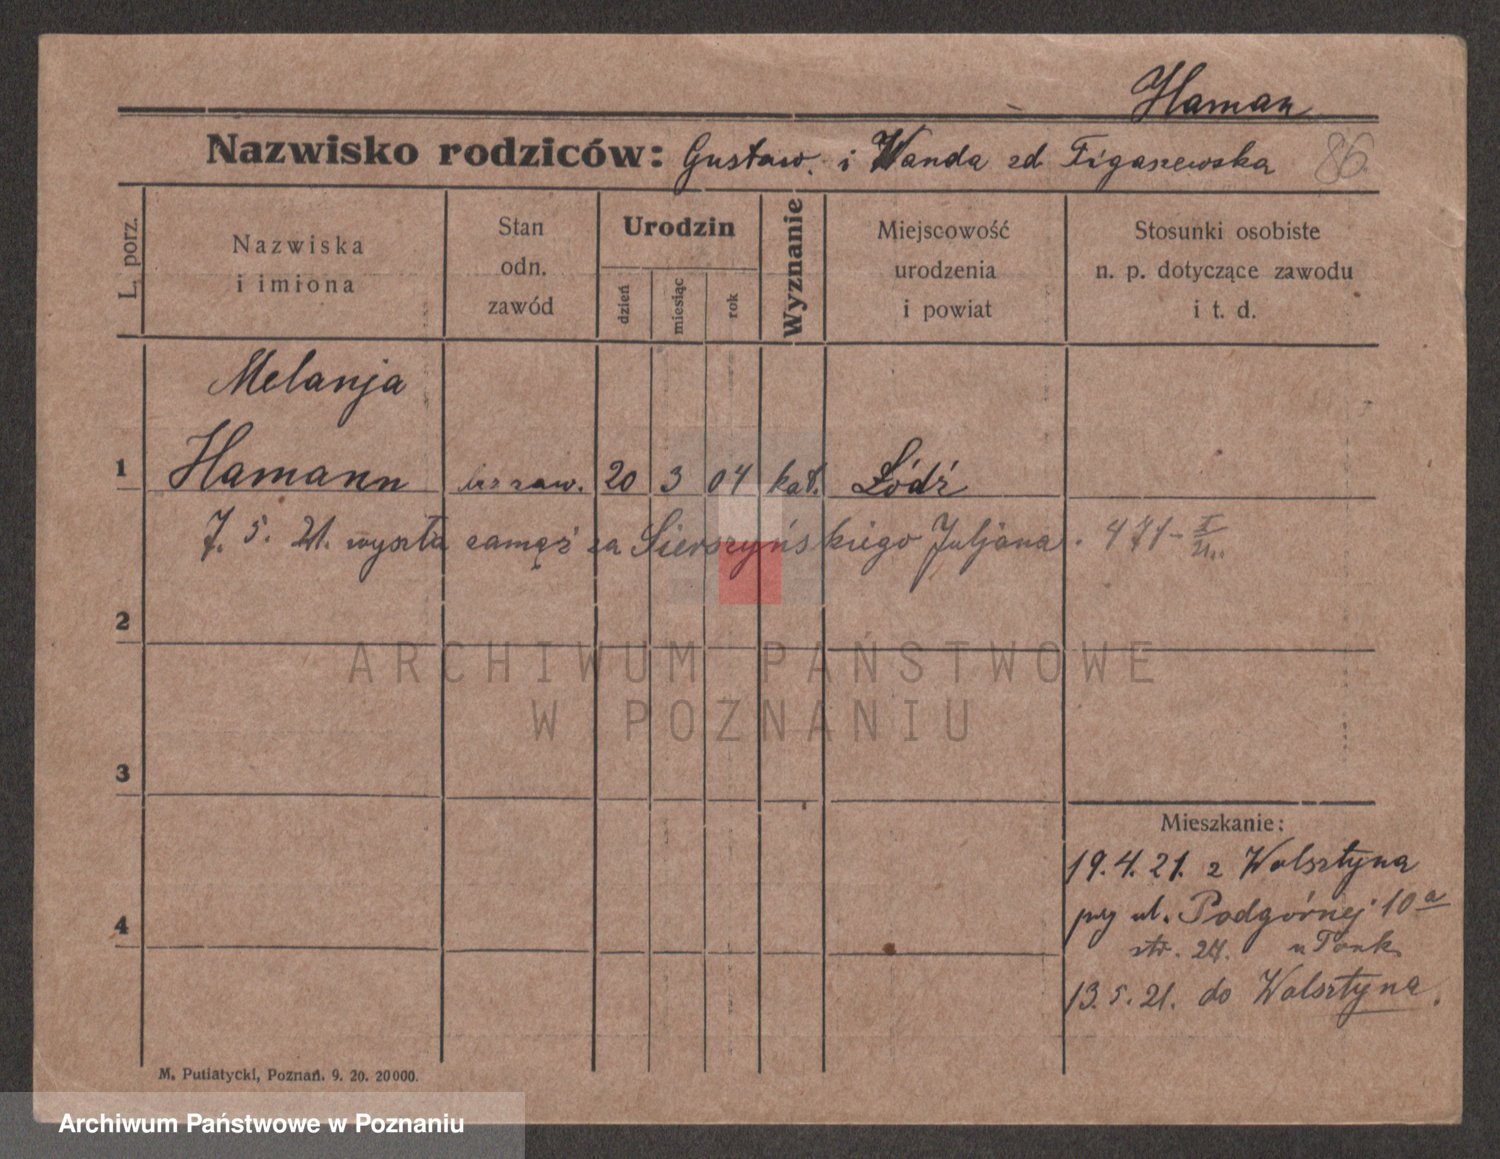 Haman
Nazwisko rodziców: Gustaw. i Wanda zd Figaszewska 86
L. porz.
Nazwiska
i imiona
Stan
odn.
zawód
Urodzin
dzień
miesiąc
rok
Wyznanie
Miejscowość
urodzenia
i powiat
Stosunki osobiste
n. p. dotyczące zawodu
i t. d.
Melanja
1 Hamann bez zaw. 20 3 04 kat. Łódź
7. 5. 21. wyszła zamąż za Sierszyńskiego Juljana. 471
2
ARCHIWUM PAŃSTWOWE
W POZNANIU
3
Mieszkanie:
19. 4. 21. z Wolsztyna
4
przy ul. Podgórnej 10a
str. 24. u Tonk
13. 5. 21. do Wolsztyna.
M. Putiatycki, Poznań. 9. 20. 20000.
Archiwum Państwowe w Poznaniu